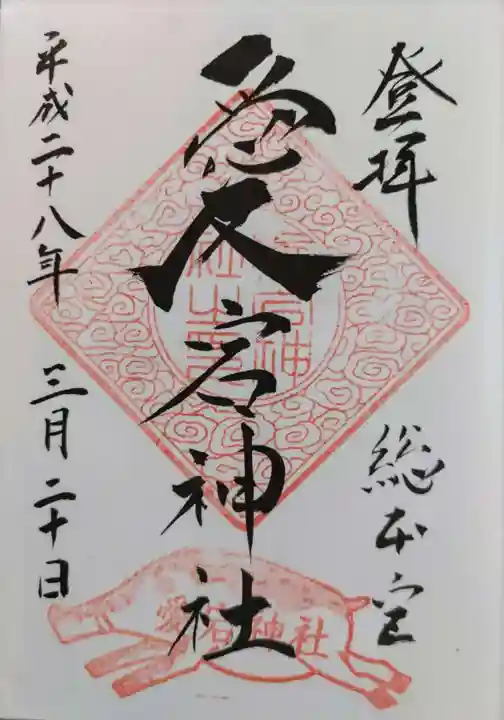 登拝
総本宮
愛宕神社
平成二十八年 三月二十日
愛宕神社